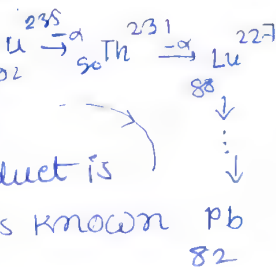 u 235 -α→ 90Th 231 -α→ Lu 227
92 88
↓
⋮
↓
duct is
s known Pb
82